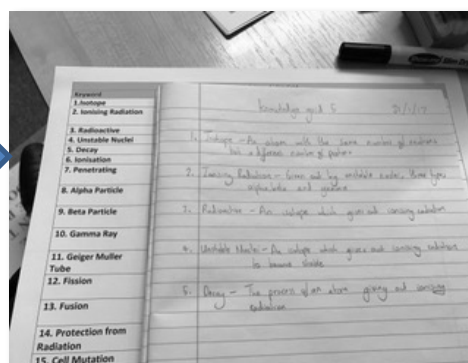 Keyword
1.Isotope
2. Ionising Radiation
3. Radioactive
4. Unstable Nuclei
5. Decay
6. Ionisation
7. Penetrating
8. Alpha Particle
9. Beta Particle
10. Gamma Ray
11. Geiger Muller
Tube
12. Fission
13. Fusion
14. Protection from
Radiation
15. Cell Mutation
Knowledge grid 5
1. Isotope - An atom with the same number of
but a different number of
2. Ionising Radiation - Given out by unstable nuclei, three types,
alpha, beta and gamma
3. Radioactive - An isotope which gives out ionising radiation
4. Unstable Nuclei - An isotope which gives out ionising radiation
to become stable
5. Decay - The process of an atom giving out ionising
radiation